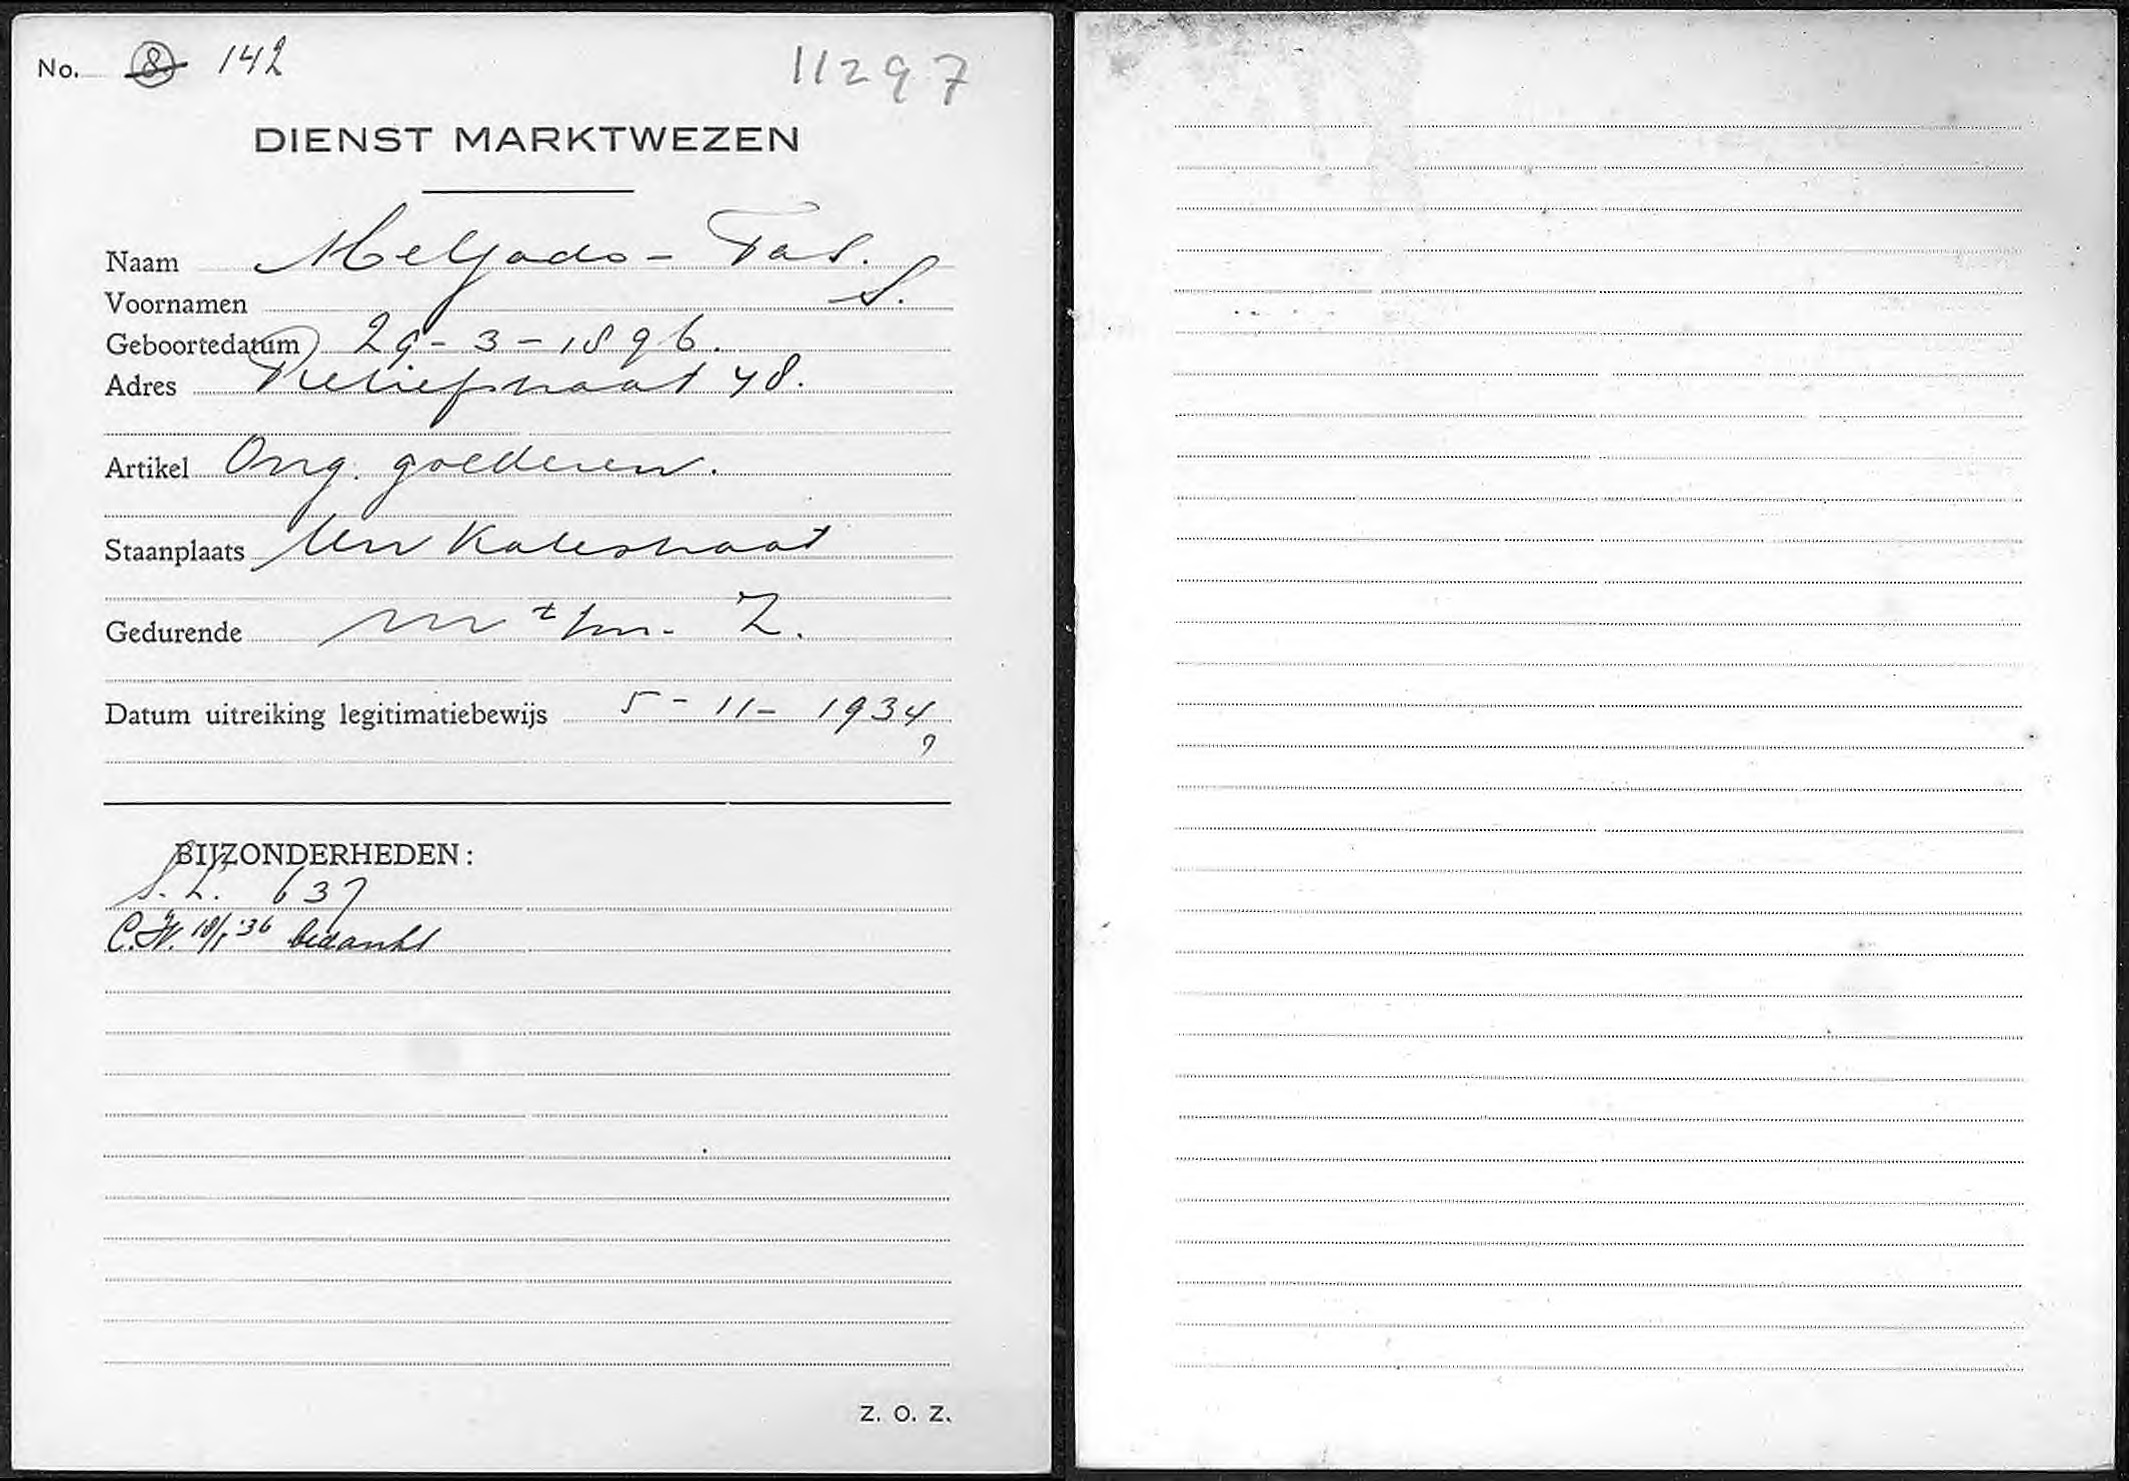 No. 8 142 11297
DIENST MARKTWEZEN
Naam Meljado - Tas.
Voornamen S.
Geboortedatum 29-3-1896.
Adres Retiefstraat 48.
Artikel Ong. goederen.
Staanplaats Ten Katestraat
Gedurende m t/m. Z.
Datum uitreiking legitimatiebewijs 5-11-1934
BIJZONDERHEDEN:
S. L. 637
'36 bedankt
Z. O. Z.